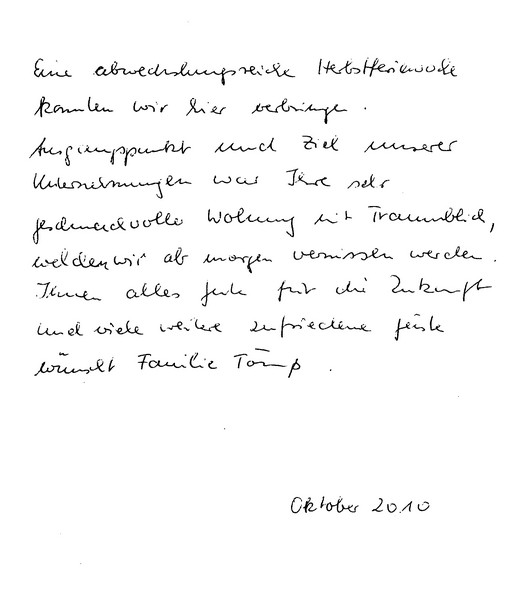 Eine abwechslungsreiche Herbstferienwoche
konnten wir hier verbringen.
Ausgangspunkt und Ziel unserer
Unternehmungen war Ihre sehr
geschmackvolle Wohnung mit Traumblick,
welchen wir ab morgen vermissen werden.
Ihnen alles Gute für die Zukunft
und viele weitere zufriedene Gäste
wünscht Familie
Oktober 2010